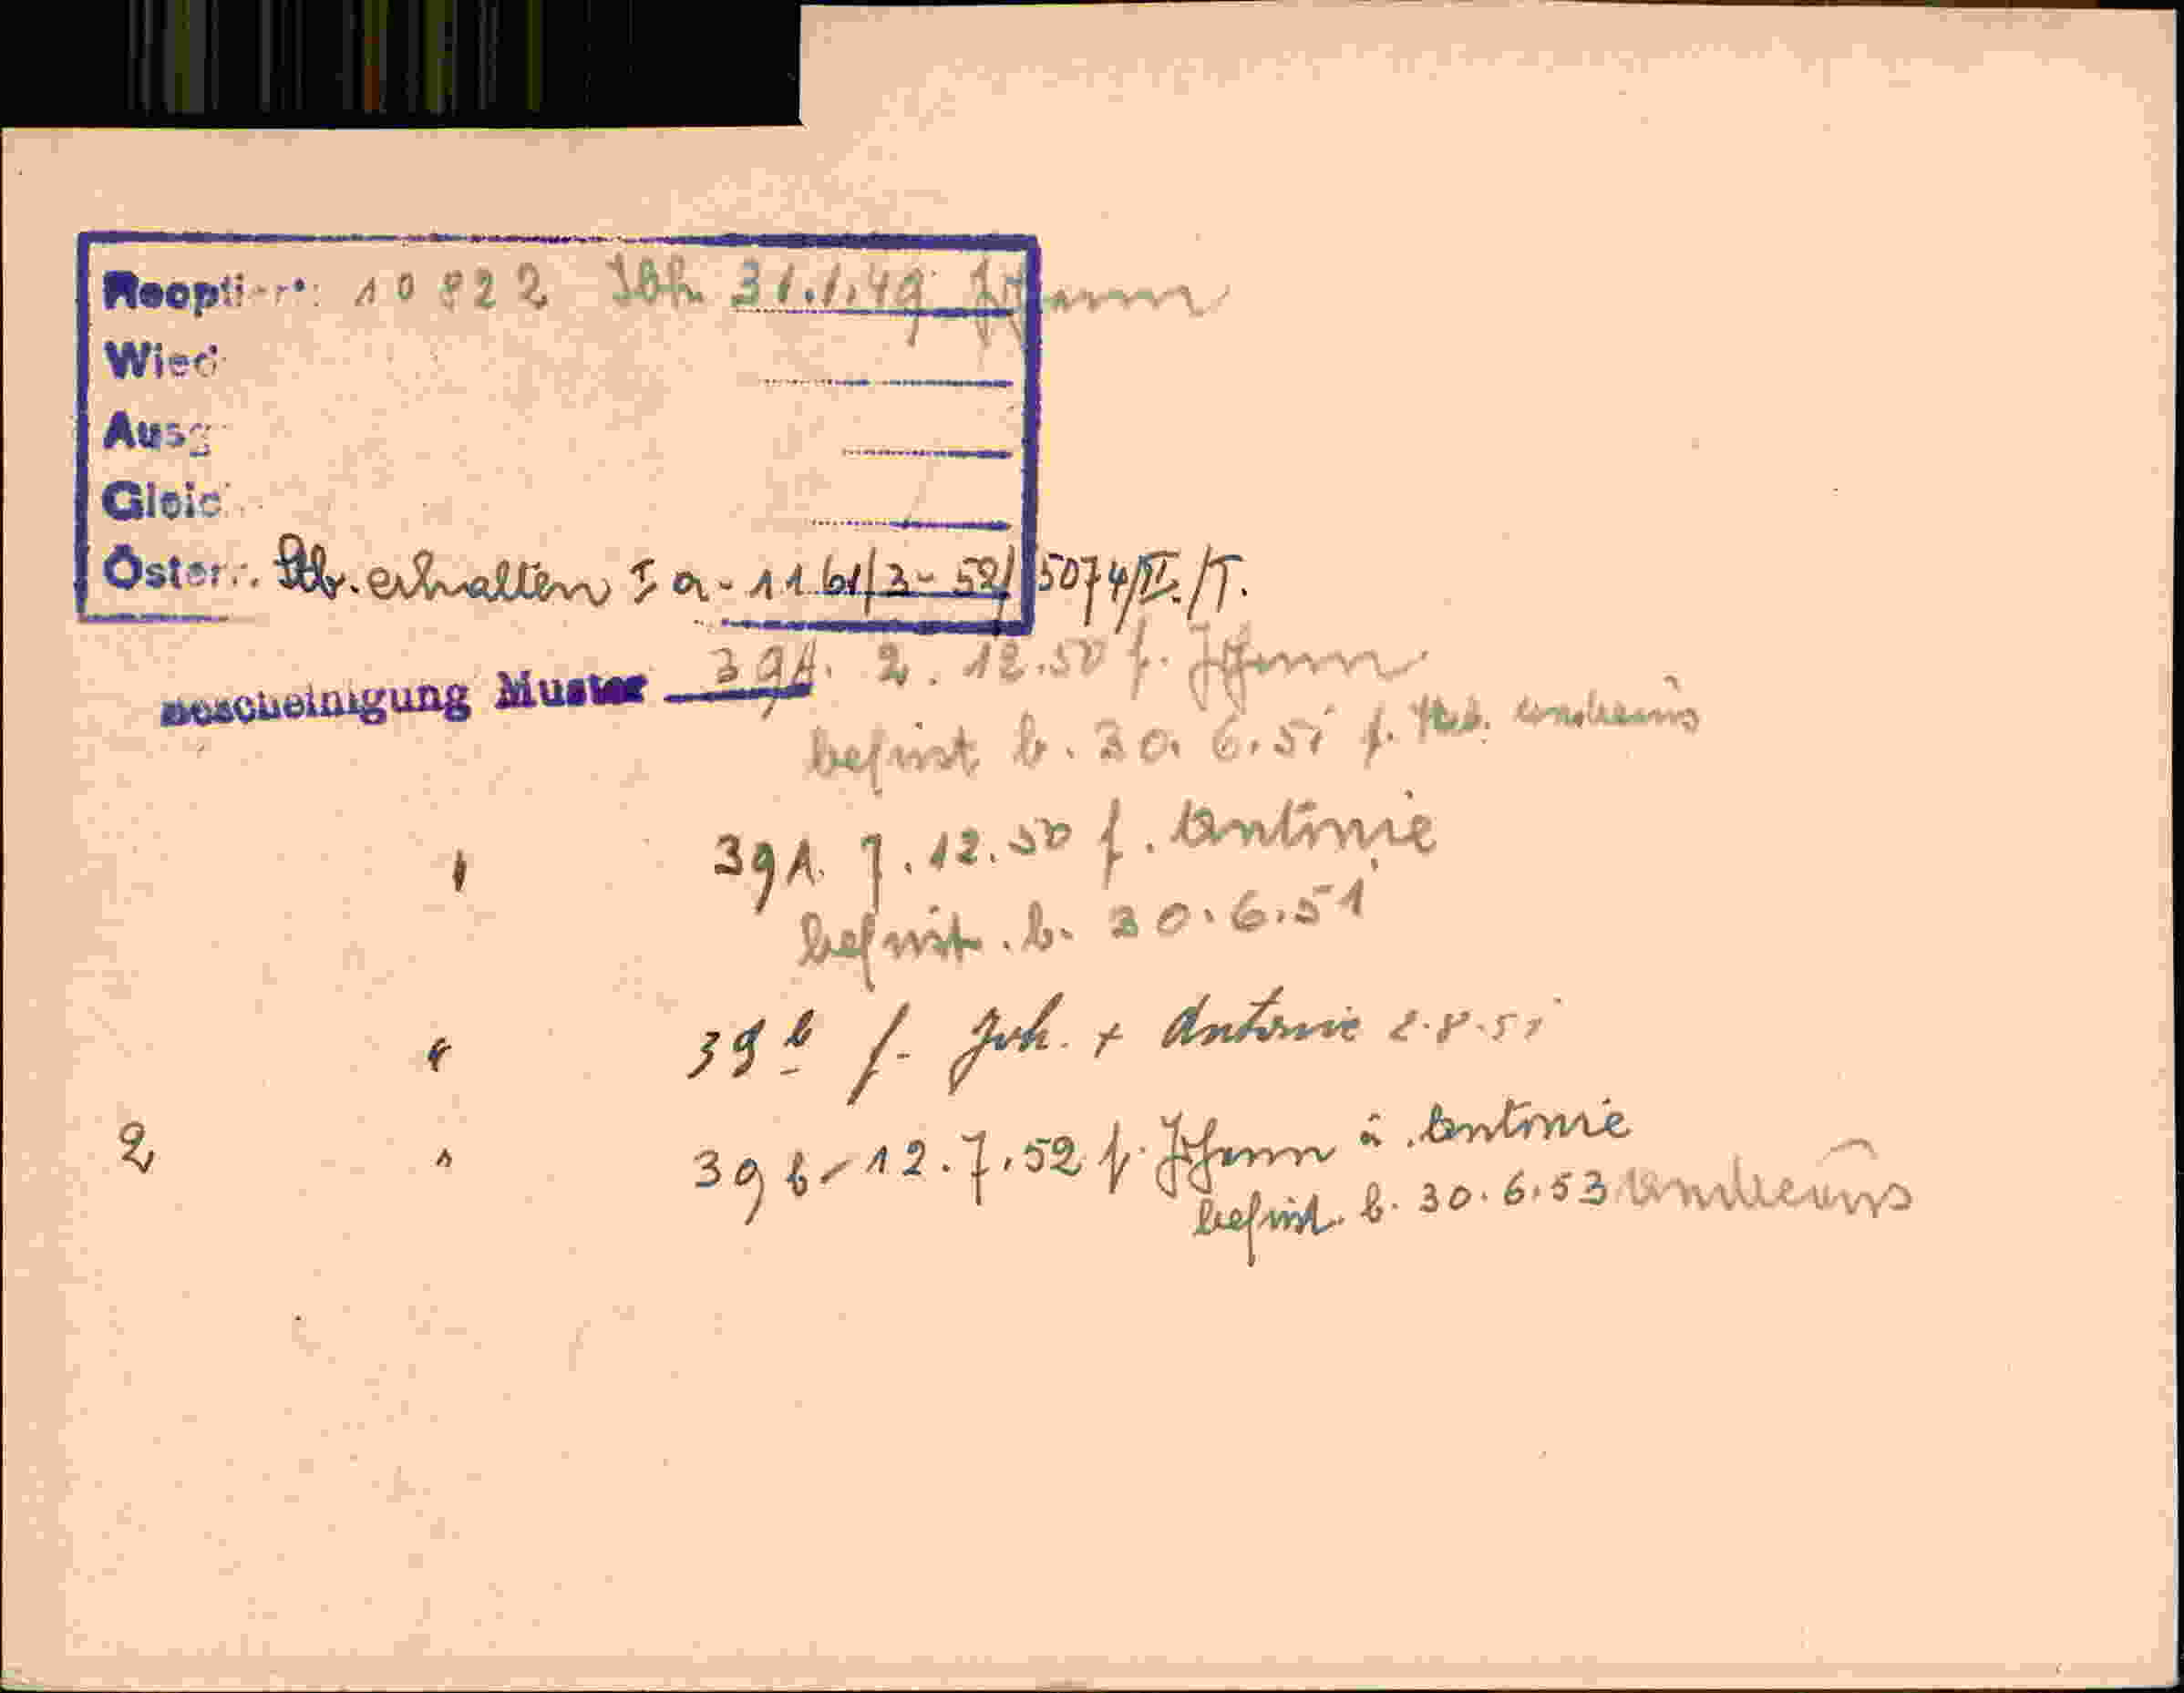 Reoptiert: 10822 31.1.49 Johann
Wied
Ausg
Gleic
Österr. erhalten I a - 11 61/3 - 52/5074/II./T.
Bescheinigung Muster 39A. 2.12.50 f. Johann
befrist b. 30.6.51 f.
39A. 7.12.50 f. Antonie
befrist. b. 30.6.51
" 39b f. Joh. + Antonie 2.8.51
2 " 39b - 12.7.52 f. Johann u. Antonie
befrist. b. 30.6.53